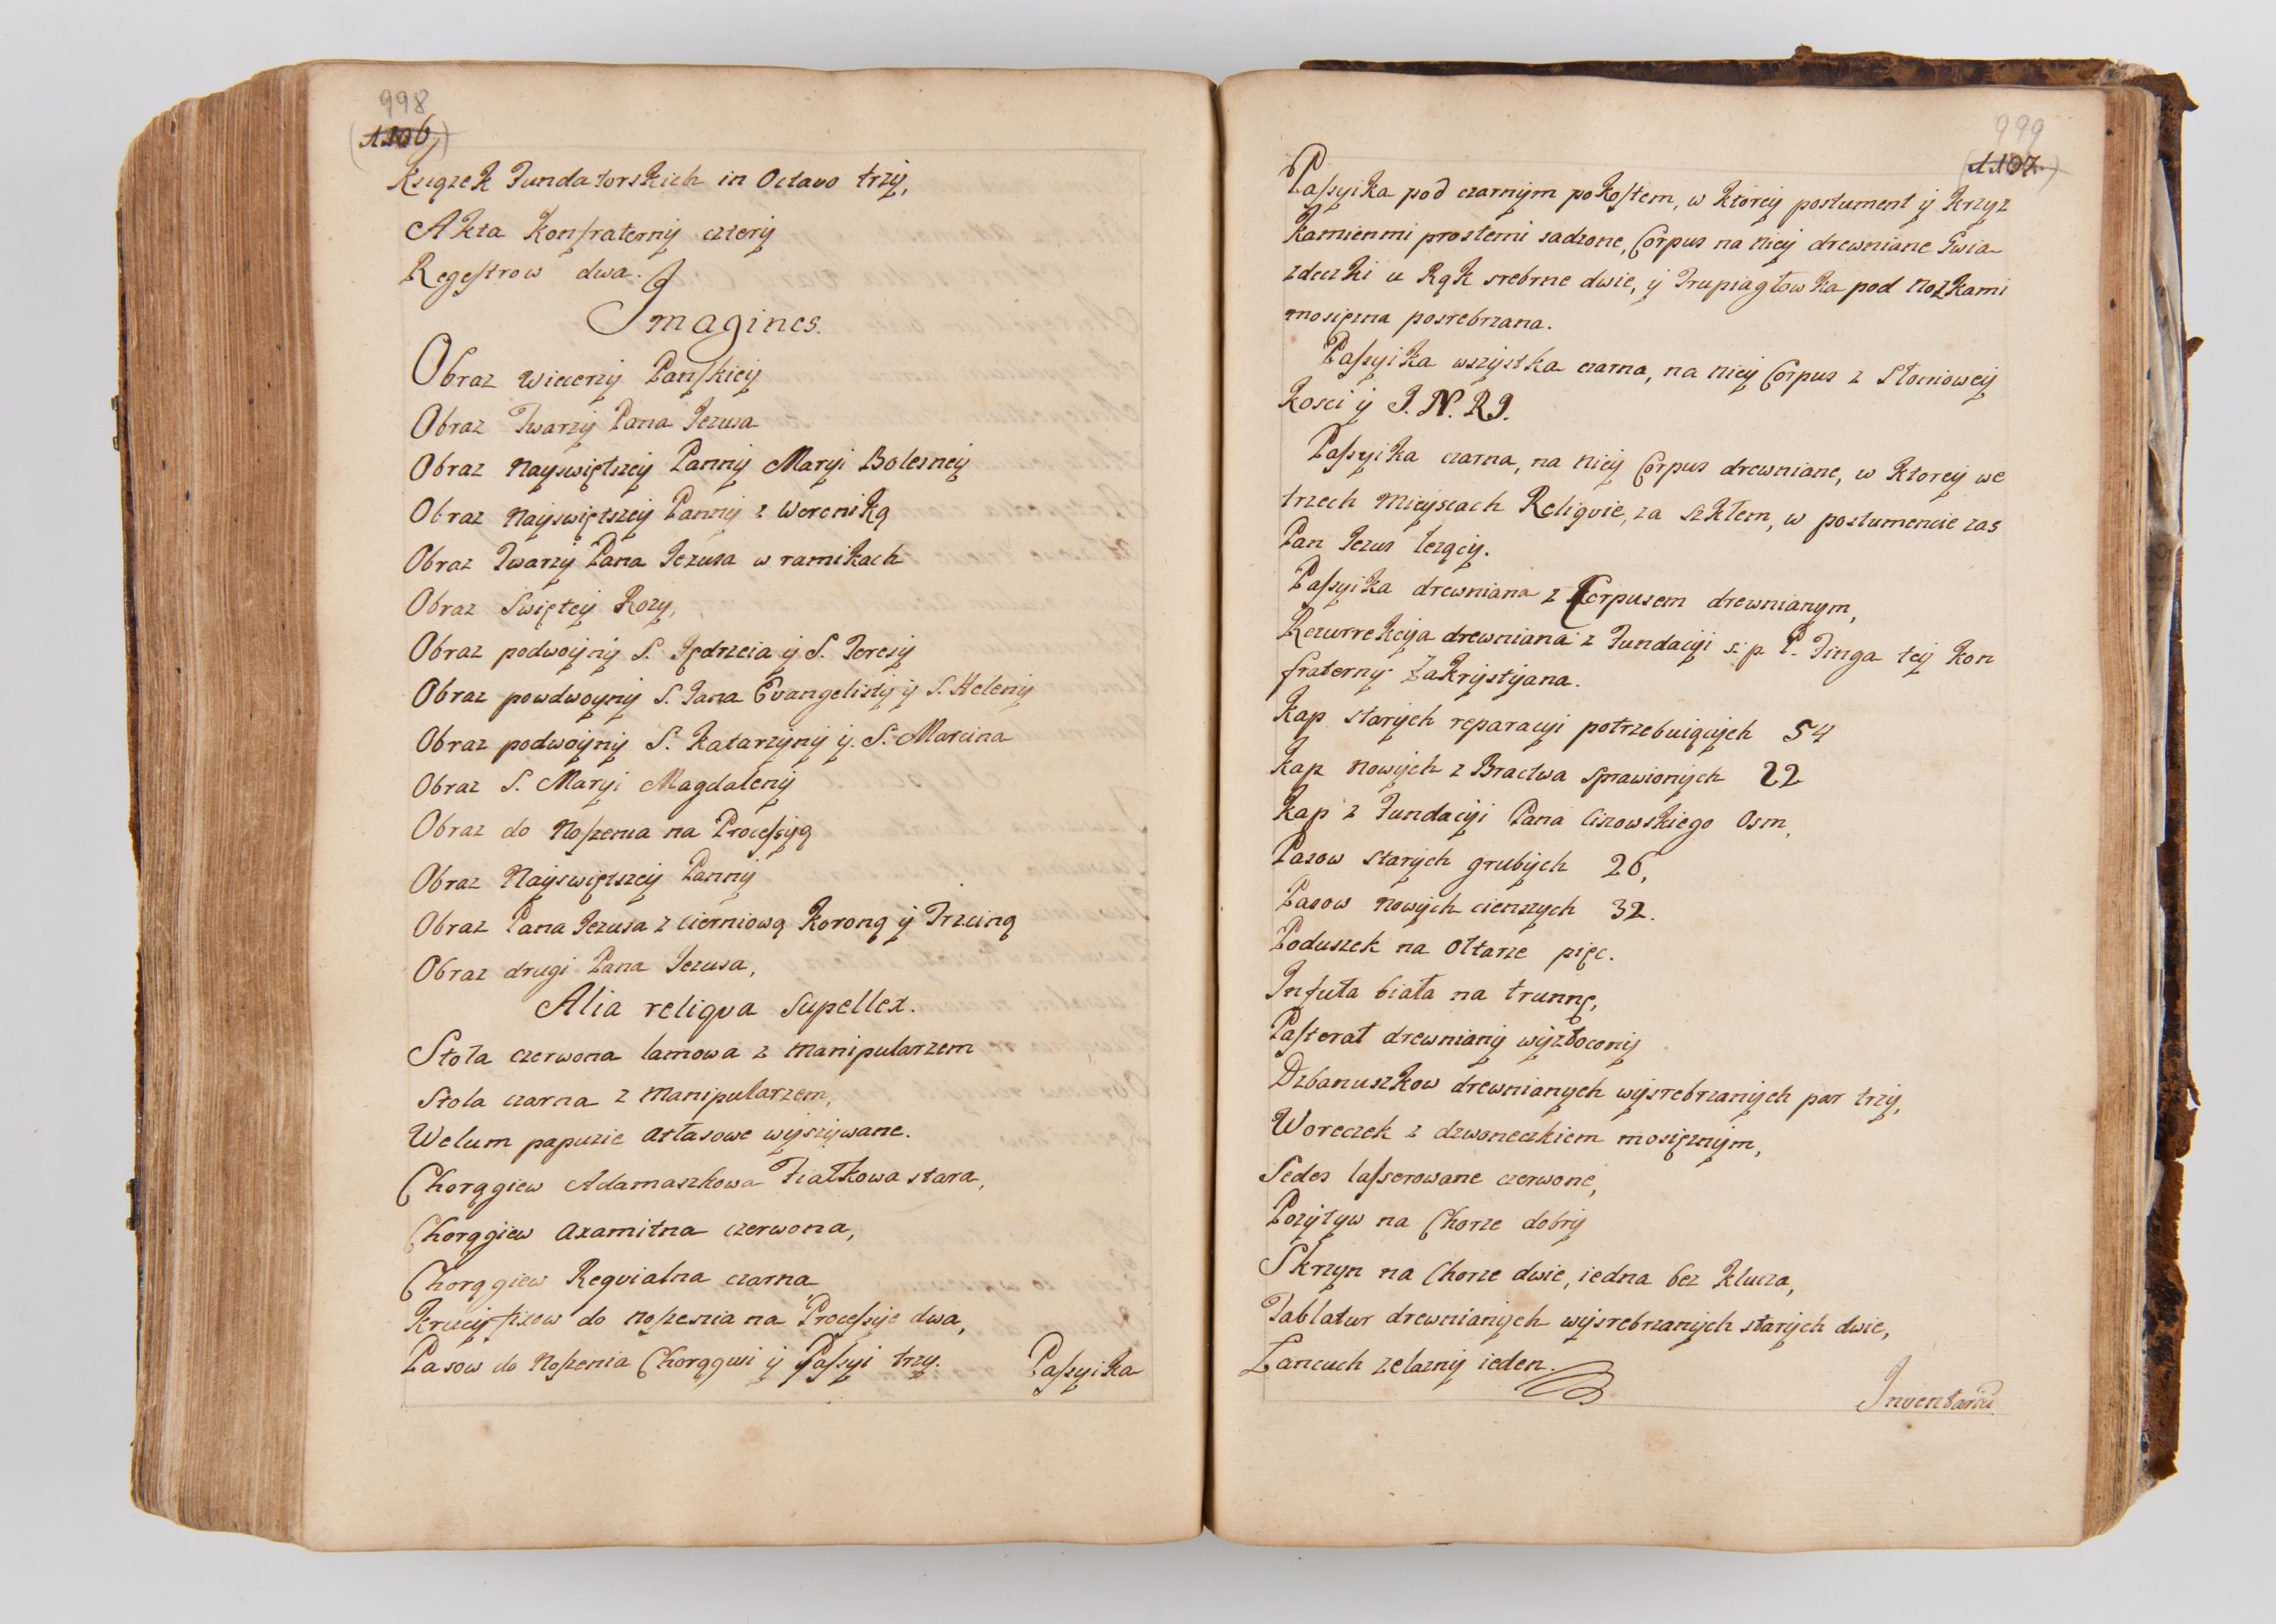 998
(1106)
Książek Fundatorskich in Octavo trzy,
Akta Konfraterny cztery
Regestrow dwa.
Imagines.
Obraz Wieczerzy Panskiey
Obraz Twarzy Pana Jezusa
Obraz Nayswiętszey Panny Maryi Bolesney
Obraz Nayswiętszey Panny z Weroniką
Obraz Twarzy Pana Jezusa w ramikach
Obraz Swiętey Rozy,
Obraz podwoyny S. Jędrzeia y S. Teresy
Obraz powdwoyny S. Jana Evangelisty y S. Heleny
Obraz podwoyny S. Katarzyny y. S. Marcina
Obraz S. Maryi Magdaleny
Obraz do Noszenia na Processyą
Obraz Nayswiętszey Panny
Obraz Pana Jezusa z cierniową Koroną y Trzciną
Obraz drugi Pana Jezusa,
Alia religva supellex.
Stoła czerwona lamowa z manipularzem
Stola czarna z manipularzem,
Welum papuzie atłasowe wyszywane.
Chorągiew Adamaszkowa Fiałkowa stara,
Chorągiew axamitna czerwona,
Chorągiew Reqvialna czarna
Krucyfixow do noszenia na Processye dwa,
Pasow do Noszenia Chorągwi y Passyi trzy.
Passyika
999
(1107)
Passyika pod czarnym pokostem, w ktorey postument y krzyz
kamienmi prostemi sadzone, Corpus na niey drewniane Gwia-
zdeczki u Rąk srebrne dwie, y Trupiagłowka pod Nozkami
mosięzna posrebrzana.
Passyika wszystka czarna, na niey Corpus z Słoniowey
Kosci y J. N. R J.
Passyika czarna, na niey Corpus drewniane, w ktorey we
trzech mieyscach Religvie, za szkłem, w postumencie zas
Pan Jezus lezący.
Passyika drewniana z Corpusem drewnianym,
Rezurrekcya drewniana z Fundacyi s. p P. Finga tey Kon
fraterny Zakrystyana.
Kap starych reparacyi potrzebuiących 54
Kap nowych z Bractwa sprawionych 22
Kap z Fundacyi Pana Cizowskiego Osm,
Pasow starych grubych 26,
Pasow nowych cienszych 32.
Poduszek na Ołtarze pięc.
Infuła biała na trunnę,
Pastorał drewniany wyzłocony
Dzbanuszkow drewnianych wysrebrzanych par trzy,
Woreczek z dzwoneczkiem mosięznym,
Sedes lasserowane czerwone,
Pozytyw na Chorze dobry
Skrzyn na Chorze dwie, iedna bez klucza,
Tablatur drewnianych wysrebrzanych starych dwie,
Łancuch zelazny ieden.
Inventariu